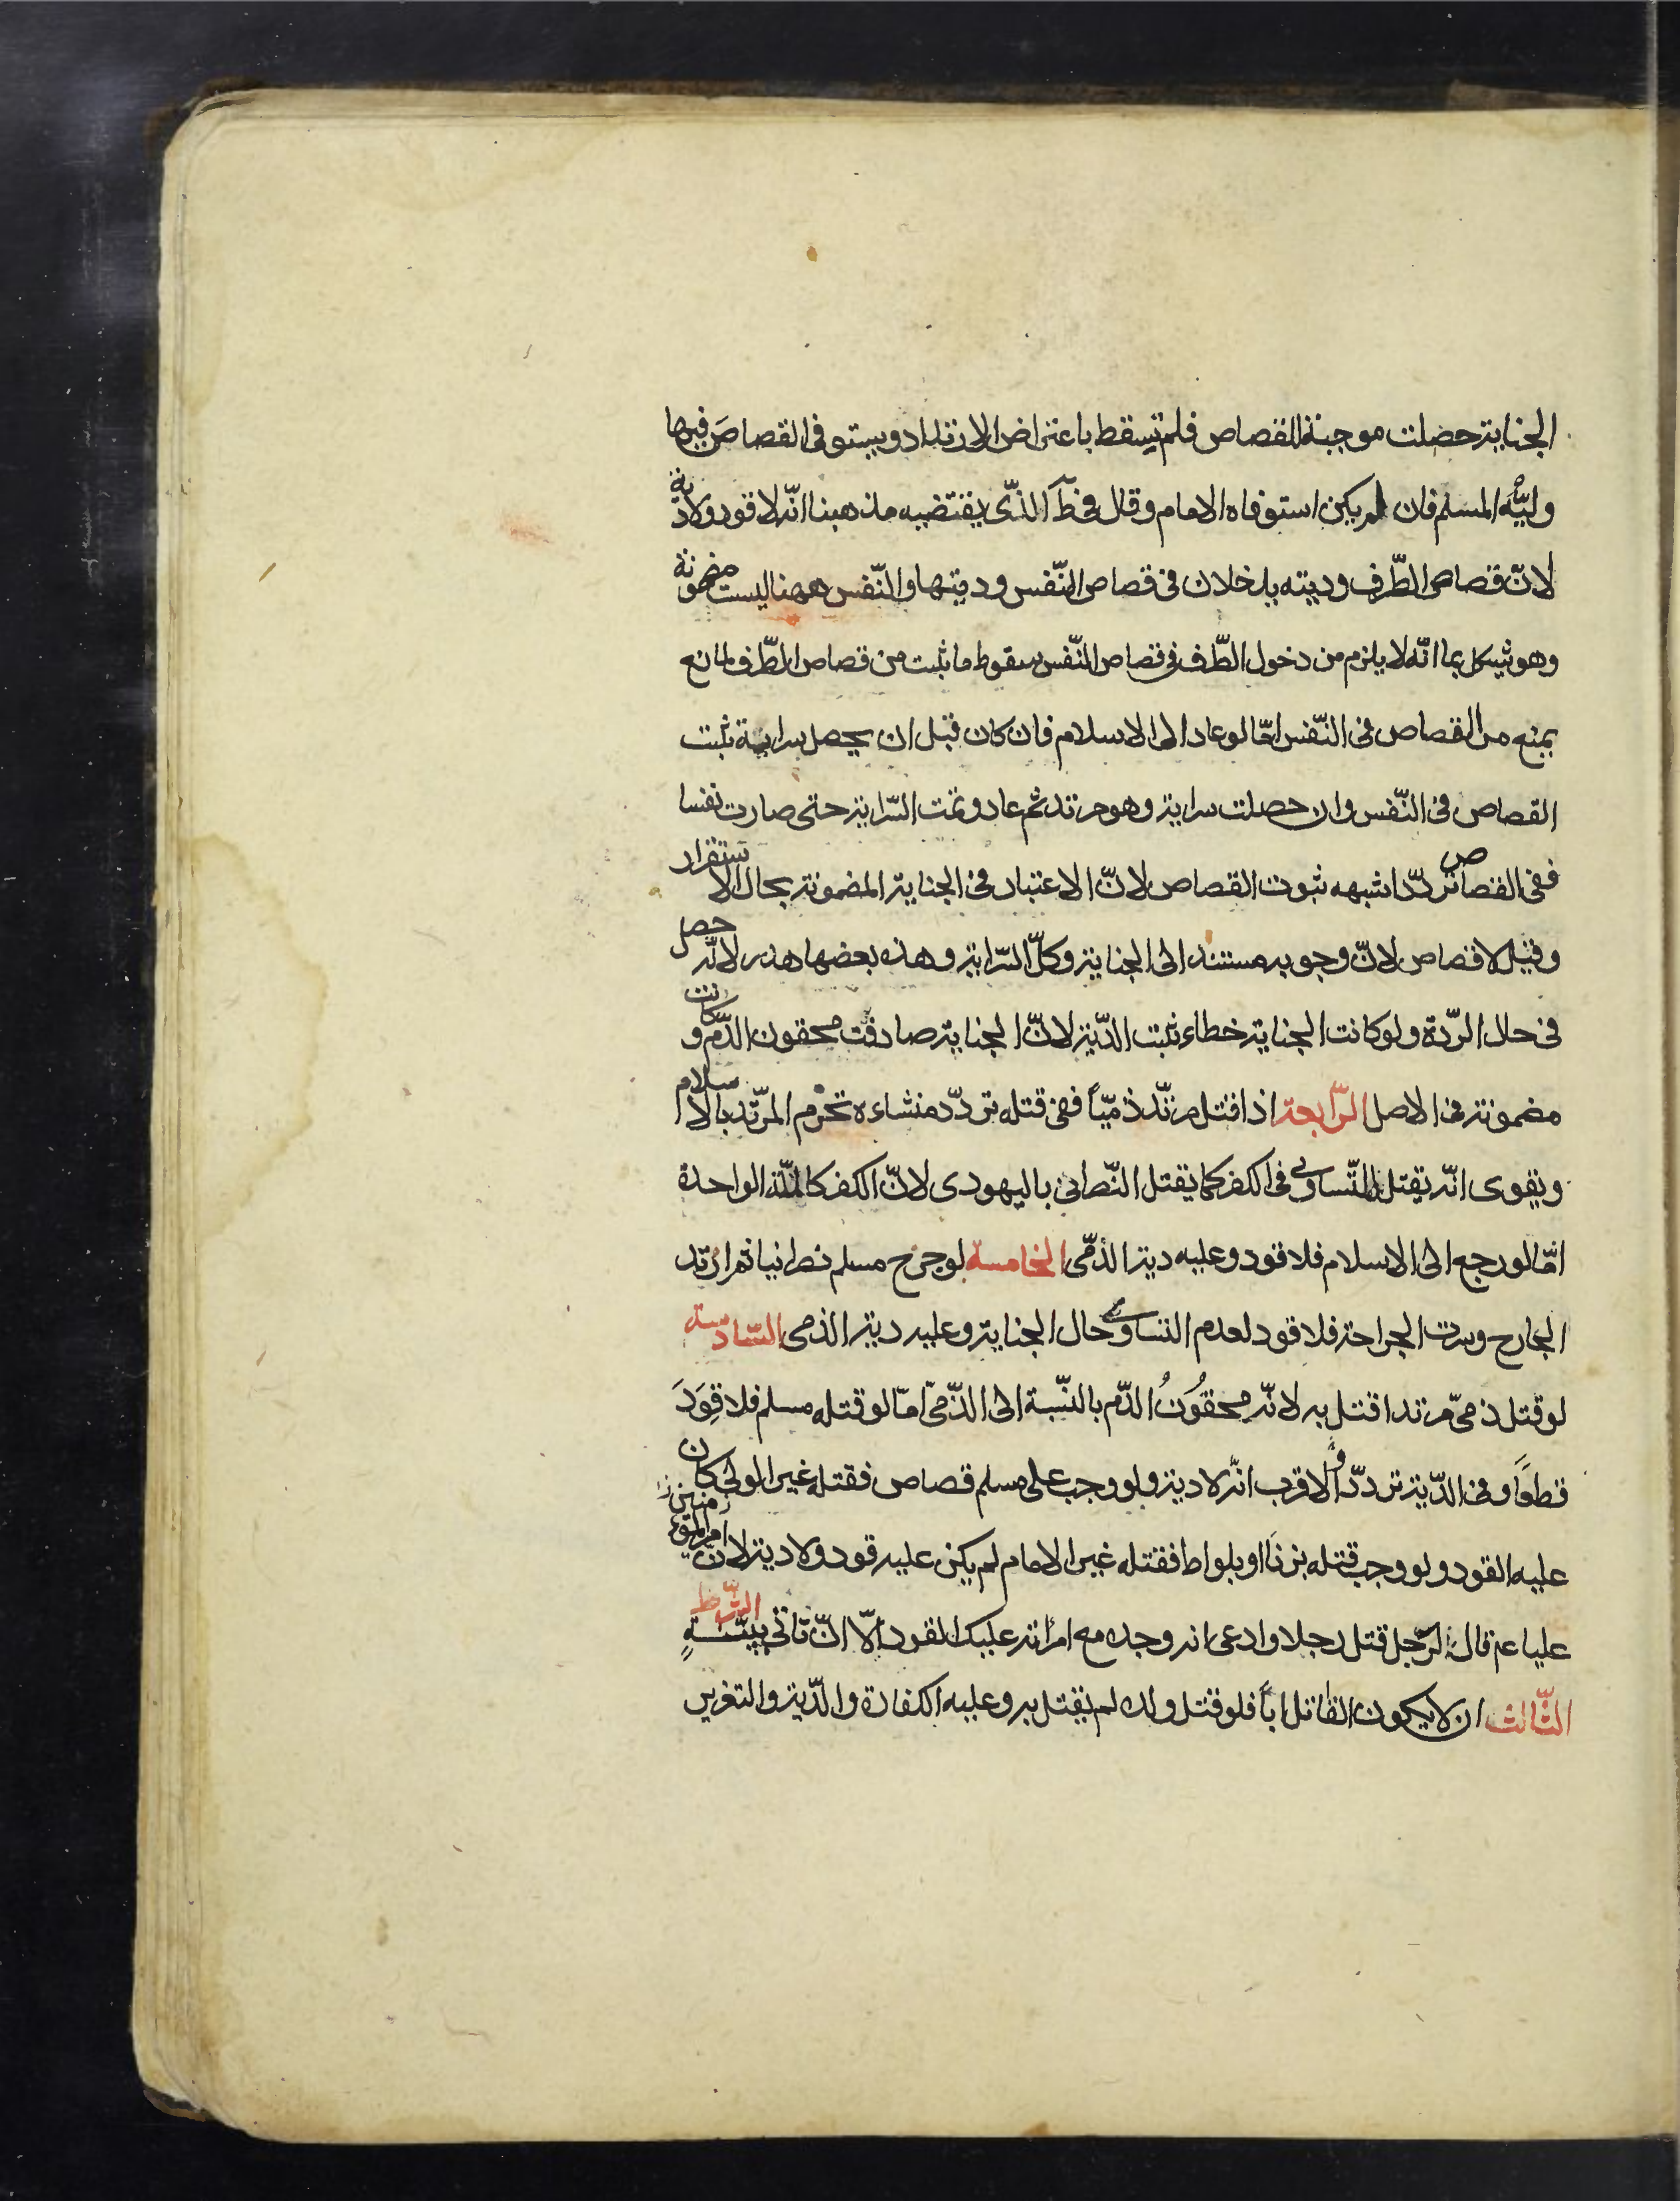 الجناية حصلت موجبة للقصاص فلم تسقط باعتراض الارتداد ويستوفى القصاص فيها
وليّه المسلم فان لم يكن استوفاه الامام وقال فى ط الذى يقتضيه مذهبنا انّه لا قود ولا دية
لانّ قصاص الطّرف وديته يدخلان فى قصاص النّفس وديتها والنّفس ههنا ليست مضمونة
وهو يشكل بما انّه لا يلزم من دخول الطّرف فى قصاص النّفس سقوط ما ثبت من قصاص الطّرف لمانع
يمنع من القصاص فى النّفس امّا لو عاد الى الاسلام فان كان قبل ان يحصل سراية ثبت
القصاص فى النّفس وان حصلت سراية وهو مرتد ثم عاد وتمت السّراية حتى صارت نفسا
ففى القصاص تردّد اشبهه ثبوت القصاص لانّ الاعتبار فى الجناية المضمونة بحال الاستقرار
وقيل لا قصاص لانّ وجوبه مستند الى الجناية وكلّ السّراية وهذه بعضها هدر لانّه حصل
فى حال الرّدة ولو كانت الجناية خطاء ثبت الدّية لانّ الجناية صادفت محقون الدّم وكانت
مضمونة فى الاصل الرّابعة اذا قتل مرتّد ذمّيّاً ففى قتله تردّد منشاءه تحرّم المرتّد بالاسلام
ويقوى انّه يقتل للتّساوى فى الكفر كما يقتل النّصرانى باليهودى لانّ الكفر كالملّة الواحدة
امّا لو رجع الى الاسلام فلا قود وعليه دية الذمّى الخامسة لو جرح مسلم نصرانيا ثم ارتد
الجارح وسرت الجراحة فلا قود لعدم التساوى حال الجناية وعليه دية الذمى السّادسة
لو قتل ذمىّ مرتدا قتل به لانّه محقُونُ الدّم بالنّسبة الى الذّمىّ امّا لو قتله مسلم فلا قِوَدَ
قطعاً وفى الدّية تردّد والاقرب انّه لا دية ولو وجب على مسلم قصاص فقتله غير الولى كان
عليه القود ولو وجب قتله بزنًا او بلواط فقتله غير الامام لم يكن عليه قود ولا دية لانّ
عليا ع قال لرّجل قتل رجلا وادعى انه وجده مع امرأته عليك القود الّا انّ تأتى ببيّنةٍ الشّرط
الثّالث ان لا يكون القاتل اباً فلو قتل ولده لم يقتل به وعليه الكفارة والدّية والتعزير